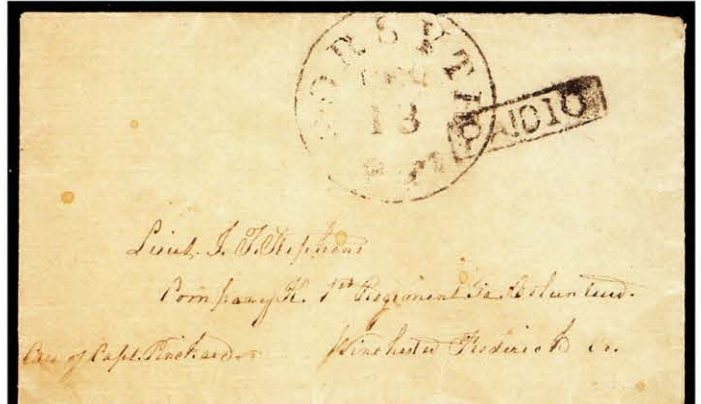 FORSYTH
DEC
13
PAID 10
Lieut. J. T. Stephens
Company K. 1st Regiment Ga Volunteers.
Care of Capt. Pinckard
Winchester Frederick Co.